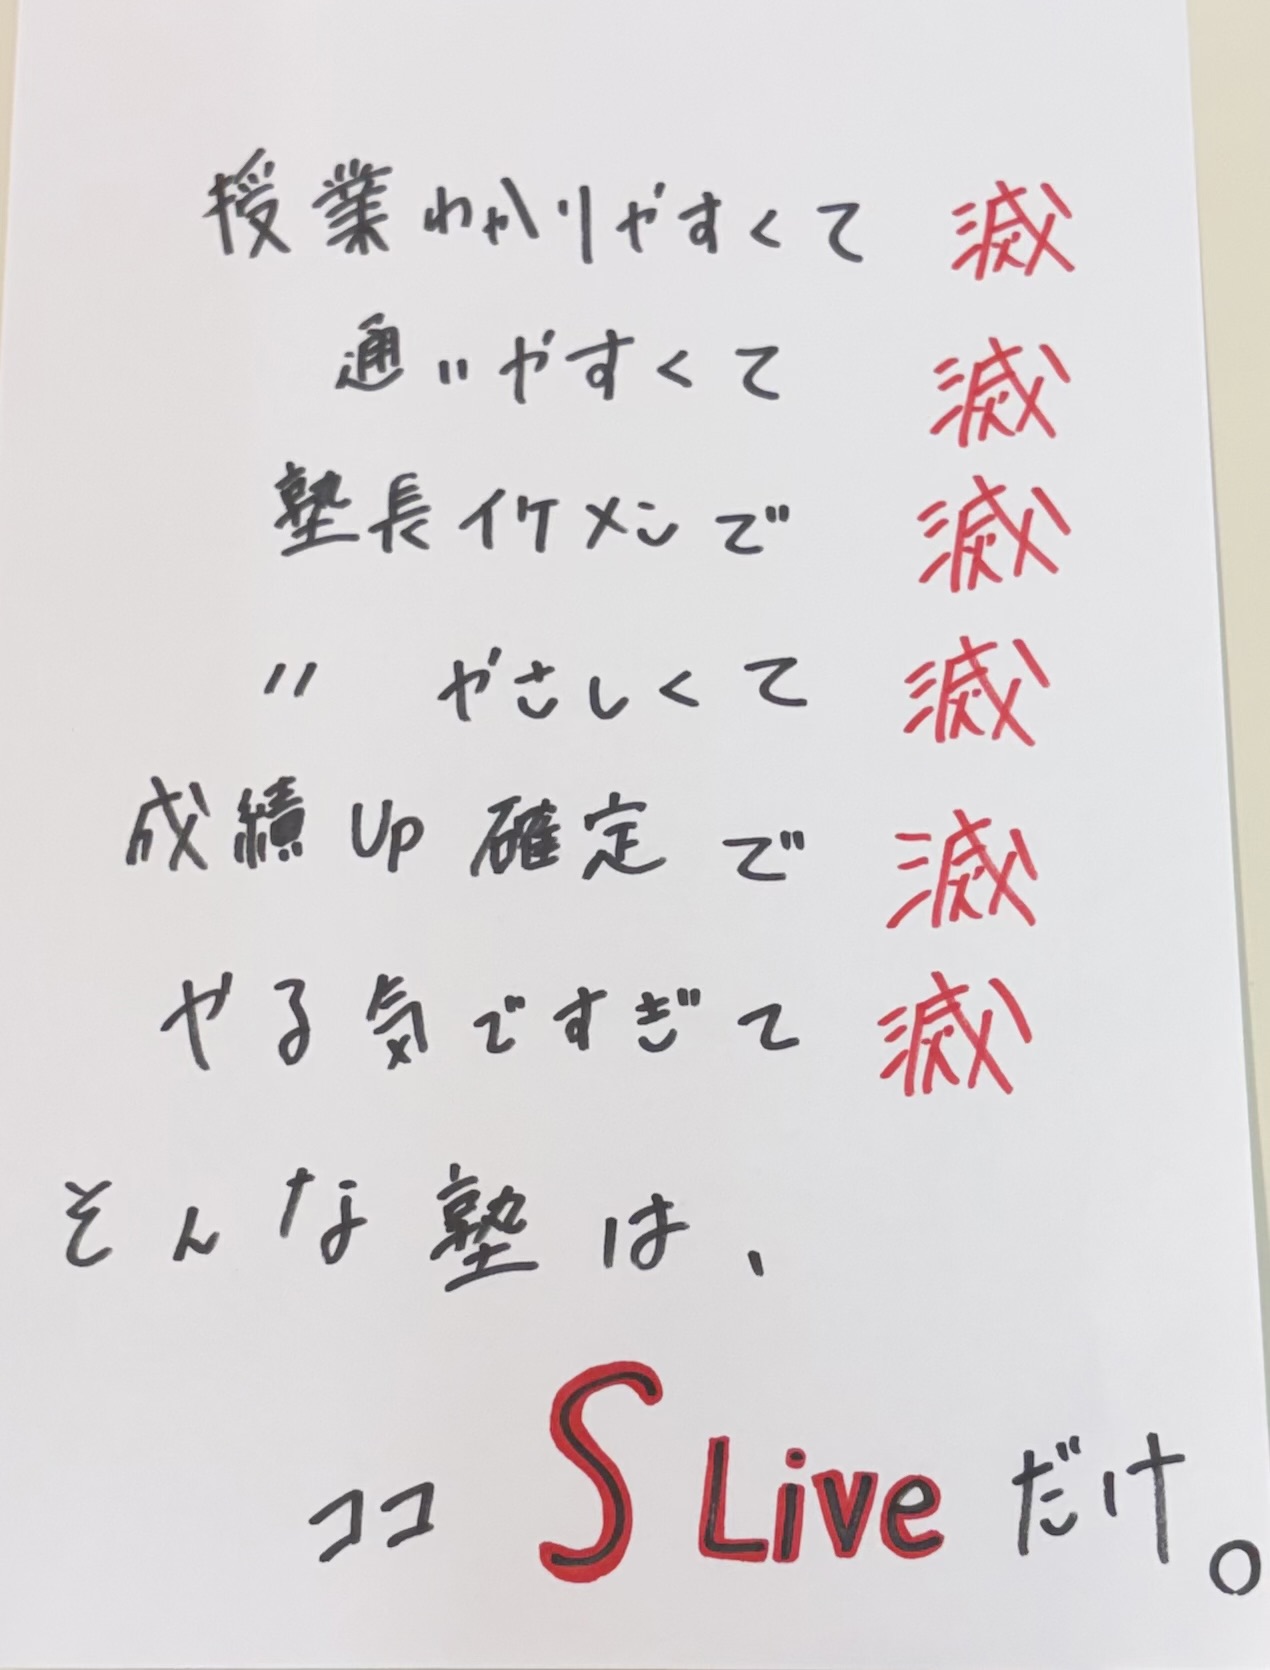 授業わかりやすくて 滅
通いやすくて 滅
塾長イケメンで 滅
〃 やさしくて 滅
成績Up確定で 滅
やる気ですぎて 滅
そんな塾は、
ココ S Live だけ。